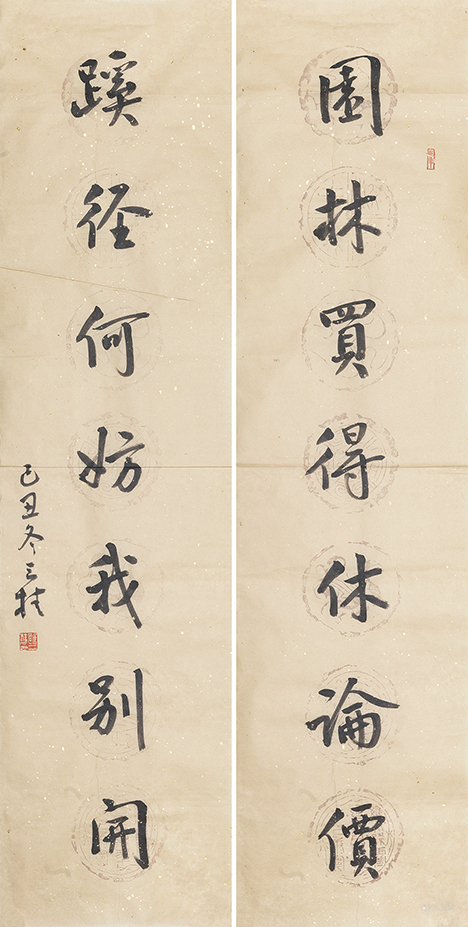 園林買得休論價
蹊徑何妨我別開
己丑冬 三桂